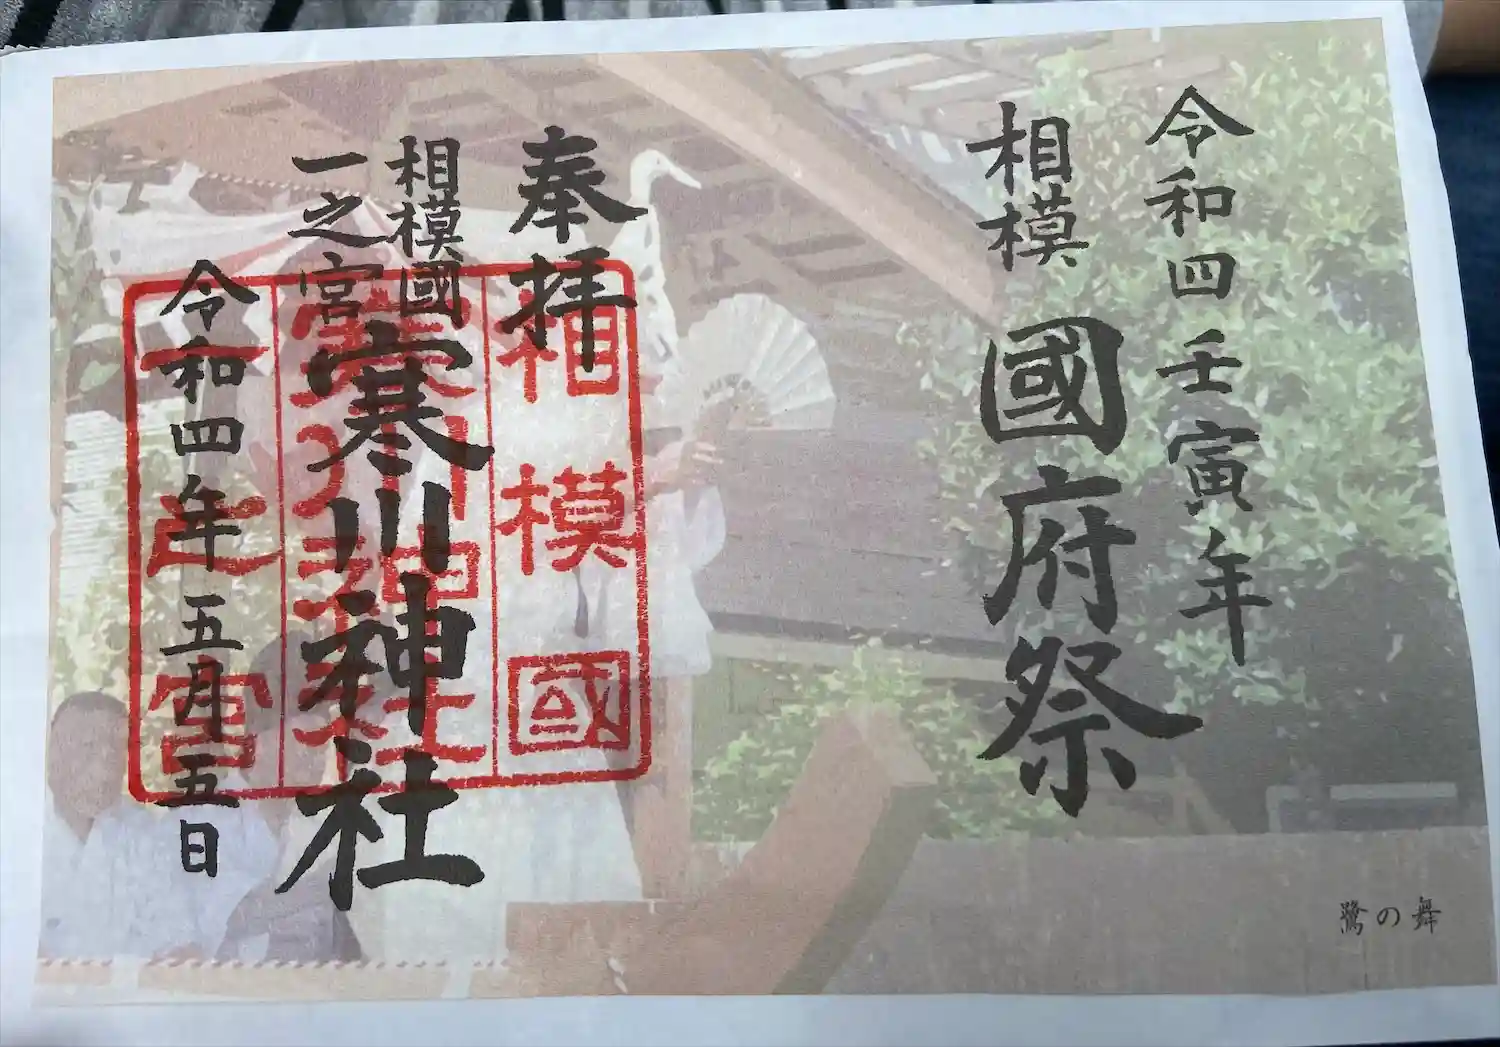 令和四壬寅年
相模 國府祭
奉拝
相模國
一之宮
寒川神社
令和四年五月五日
相模國
寒川神社
一之宮
鷺の舞